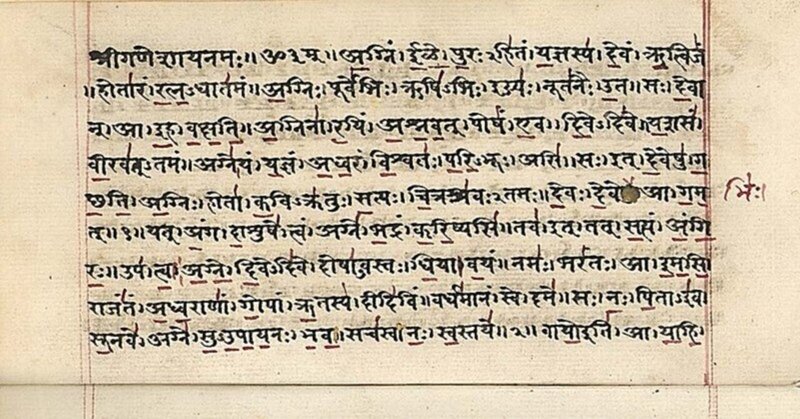 श्रीगणेशायनमः॥ॐ३म्॥अ॒ग्निं।ई॒ळे॒।पु॒रः२हि॑तं।य॒ज्ञस्य॑।दे॒वं।ऋ॒त्विजं॑
॥होता॑रं।र॒त्न॒ऽधात॑मं॥अ॒ग्निः।पूर्वे॑भिः।ऋषि॑ऽभिः।ईड्यः॑।नूत॑नैः।उ॒त॥सः।दे॒वा
न्।आ।इ॒ह।व॒क्ष॒ति॒॥अ॒ग्निना॑।र॒यिं।अ॒श्न॒व॒त्।पोषं॑।ए॒व।दि॒वेऽदि॑वे।य॒शसं॑
वी॒रव॑त्ऽतमं॥अग्ने॑।यं।य॒ज्ञं।अ॒ध्व॒रं।वि॒श्वतः॑।प॒रि॒ऽभूः।असि॑॥सः।इत्।दे॒वेषु॑।ग॒
च्छ॒ति॒।अ॒ग्निः।होता॑।क॒विऽक्र॑तुः।स॒त्यः।चि॒त्रश्र॑वः२तमः॥दे॒वः।दे॒वे आ।ग॒म॒
भिः॑।
त्॥१॥यत्।अं॒ग।दा॒शुषे॑।त्वं।अग्ने॑।भ॒द्रं।क॒रि॒ष्यसि॑॥तव॑।इत्।तत्।स॒त्यं।अं॒गि॒
रः॒॥उप॑।त्वा॒।अ॒ग्ने॒।दि॒वेऽदि॑वे।दोषा॑ऽवस्तः।धि॒या।व॒यं॥नमः॑।भरं॑तः।आ।इ॒म॒सि॒
राजं॑तं।अ॒ध्व॒राणां॑।गो॒पां।ऋ॒तस्य॑।दीदि॑विं॥वर्ध॑मानं।स्वे।दमे॑॥सः।नः॒।पि॒ता।इ॑व
सू॒नवे॑।अग्ने॑।सु॒ऽउ॒पा॒य॒नः।भ॒व॒॥सच॑स्व।नः॒।स्व॒स्तये॑॥२॥वायो॒इति॑।आ।या॒हि॒